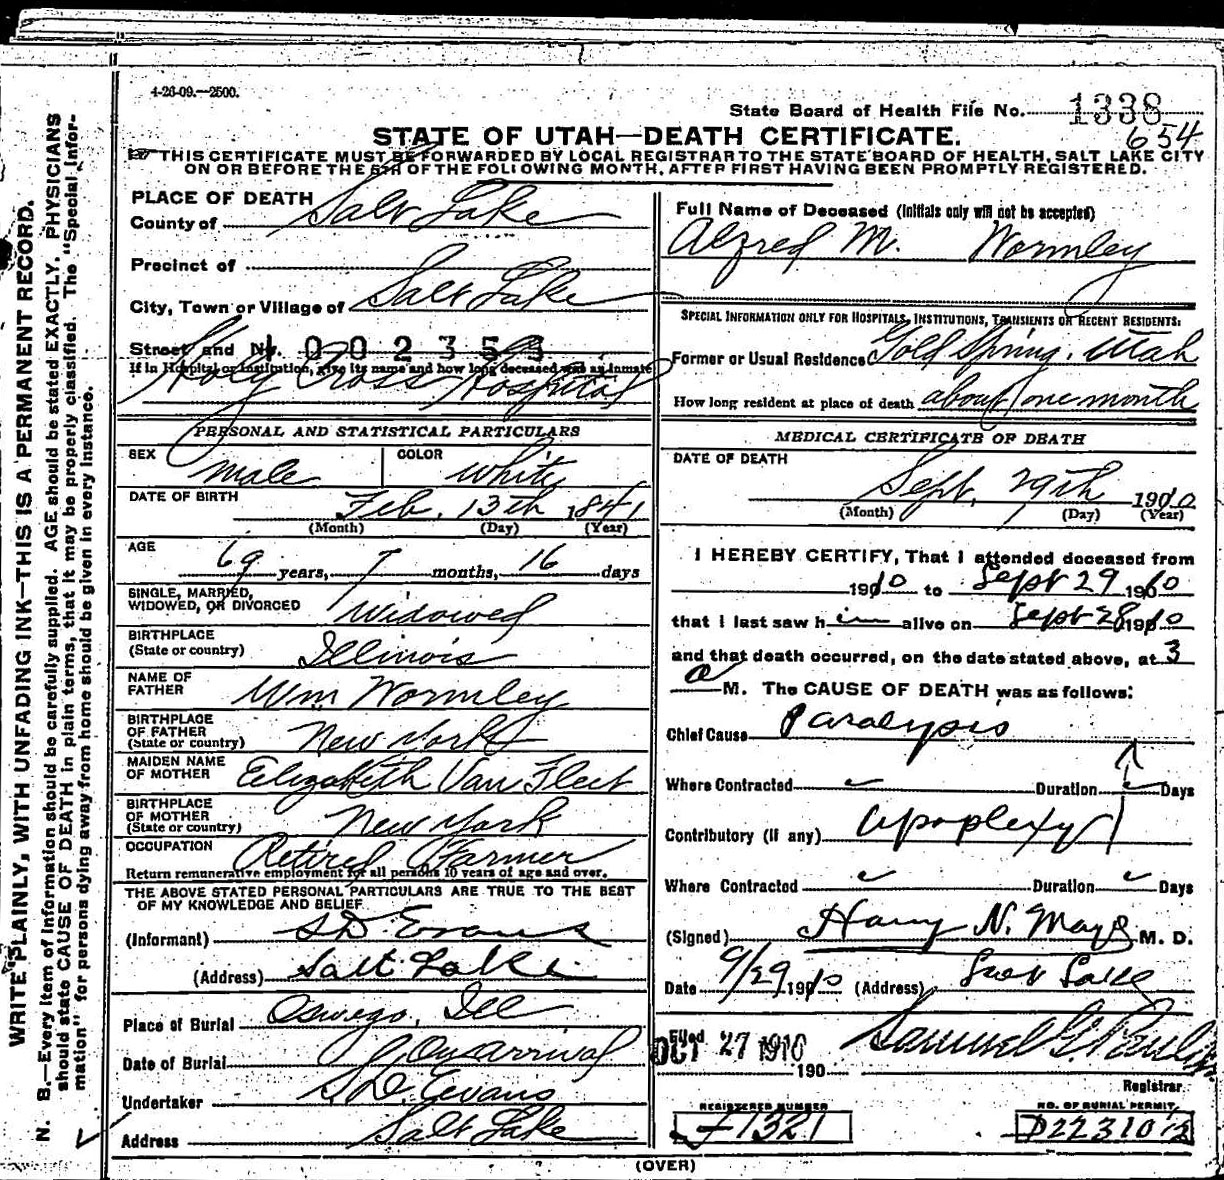 4-26-09.—2500.
State Board of Health File No. 1338
654
STATE OF UTAH—DEATH CERTIFICATE.
THIS CERTIFICATE MUST BE FORWARDED BY LOCAL REGISTRAR TO THE STATE BOARD OF HEALTH, SALT LAKE CITY
ON OR BEFORE THE 5TH OF THE FOLLOWING MONTH, AFTER FIRST HAVING BEEN PROMPTLY REGISTERED.
WRITE PLAINLY, WITH UNFADING INK—THIS IS A PERMANENT RECORD.
N. B.—Every item of information should be carefully supplied. AGE should be stated EXACTLY. PHYSICIANS
should state CAUSE OF DEATH in plain terms, that it may be properly classified. The "Special Infor-
mation" for persons dying away from home should be given in every instance.
PLACE OF DEATH
County of Salt Lake
Precinct of
City, Town or Village of Salt Lake
Street and No. 1002355
If in Hospital or Institution, give its name and how long deceased was an inmate
Holy Cross Hospital
PERSONAL AND STATISTICAL PARTICULARS
SEX male COLOR white
DATE OF BIRTH Feb. 13th 1841
(Month) (Day) (Year)
AGE 69 years, 7 months, 16 days
SINGLE, MARRIED,
WIDOWED, OR DIVORCED Widowed
BIRTHPLACE
(State or country) Illinois
NAME OF
FATHER Wm Wormley
BIRTHPLACE
OF FATHER
(State or country) New York
MAIDEN NAME
OF MOTHER Elizabeth Van Fleet
BIRTHPLACE
OF MOTHER
(State or country) New York
OCCUPATION Retired Farmer
Return remunerative employment for all persons 10 years of age and over.
THE ABOVE STATED PERSONAL PARTICULARS ARE TRUE TO THE BEST
OF MY KNOWLEDGE AND BELIEF
(Informant) S D. Evans
(Address) Salt Lake
Place of Burial Oswego, Ill
Date of Burial On arrival
Undertaker S. D. Evans
Address Salt Lake
Full Name of Deceased (Initials only will not be accepted)
Alfred M. Wormley
SPECIAL INFORMATION ONLY FOR HOSPITALS, INSTITUTIONS, TRANSIENTS OR RECENT RESIDENTS:
Former or Usual Residence Gold Spring, Utah
How long resident at place of death about one month
MEDICAL CERTIFICATE OF DEATH
DATE OF DEATH
Sept, 29th 1910
(Month) (Day) (Year)
I HEREBY CERTIFY, That I attended deceased from
1910 to Sept 29 1910
that I last saw him alive on Sept 28 1910
and that death occurred, on the date stated above, at 3
a M. The CAUSE OF DEATH was as follows:
Chief Cause Paralysis
Where Contracted Duration Days
Contributory (if any) Apoplexy
Where Contracted Duration Days
(Signed) Harry N. Mayo M. D.
Date 9/29 1910 (Address) Salt Lake
Filed OCT 27 1910
190 Samuel G. Paul
Registrar.
REGISTERED NUMBER
F1321
NO. OF BURIAL PERMIT
D22310 1/2
(OVER)